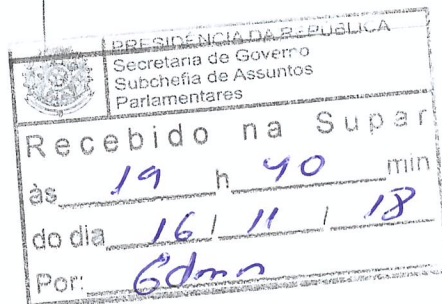 PRESIDÊNCIA DA REPÚBLICA
Secretaria de Governo
Subchefia de Assuntos
Parlamentares
Recebido na Supar
às 19 h 40 min
do dia 16 / 11 / 18
Por: